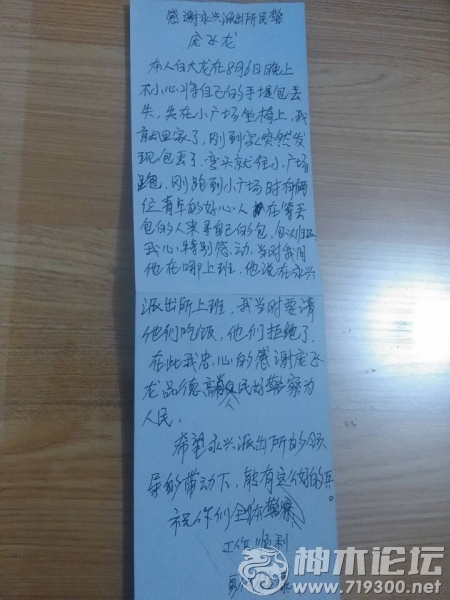 感谢永兴派出所民警
庞飞龙
本人白大龙在8月6日晚上
不小心将自己的手提包丢
失，失在小广场坐椅上，我
就回家了，刚到家突然发
现包丢了，弯头就往小广场
跑，刚跑到小广场时有俩
位青年的好心人在等丢
包的人来寻自己的包，
我心特别感动，当时我问
他在哪上班，他说在永兴
派出所上班，我当时要请
他们吃饭，他们拒绝了，
在此我忠心的感谢庞飞
龙品德高尚人民好警察为
人民.
希望永兴派出所的领
导的带动下，能有这样的兵。
祝你们全体警察
工作顺利
神木论坛
www.719300.net